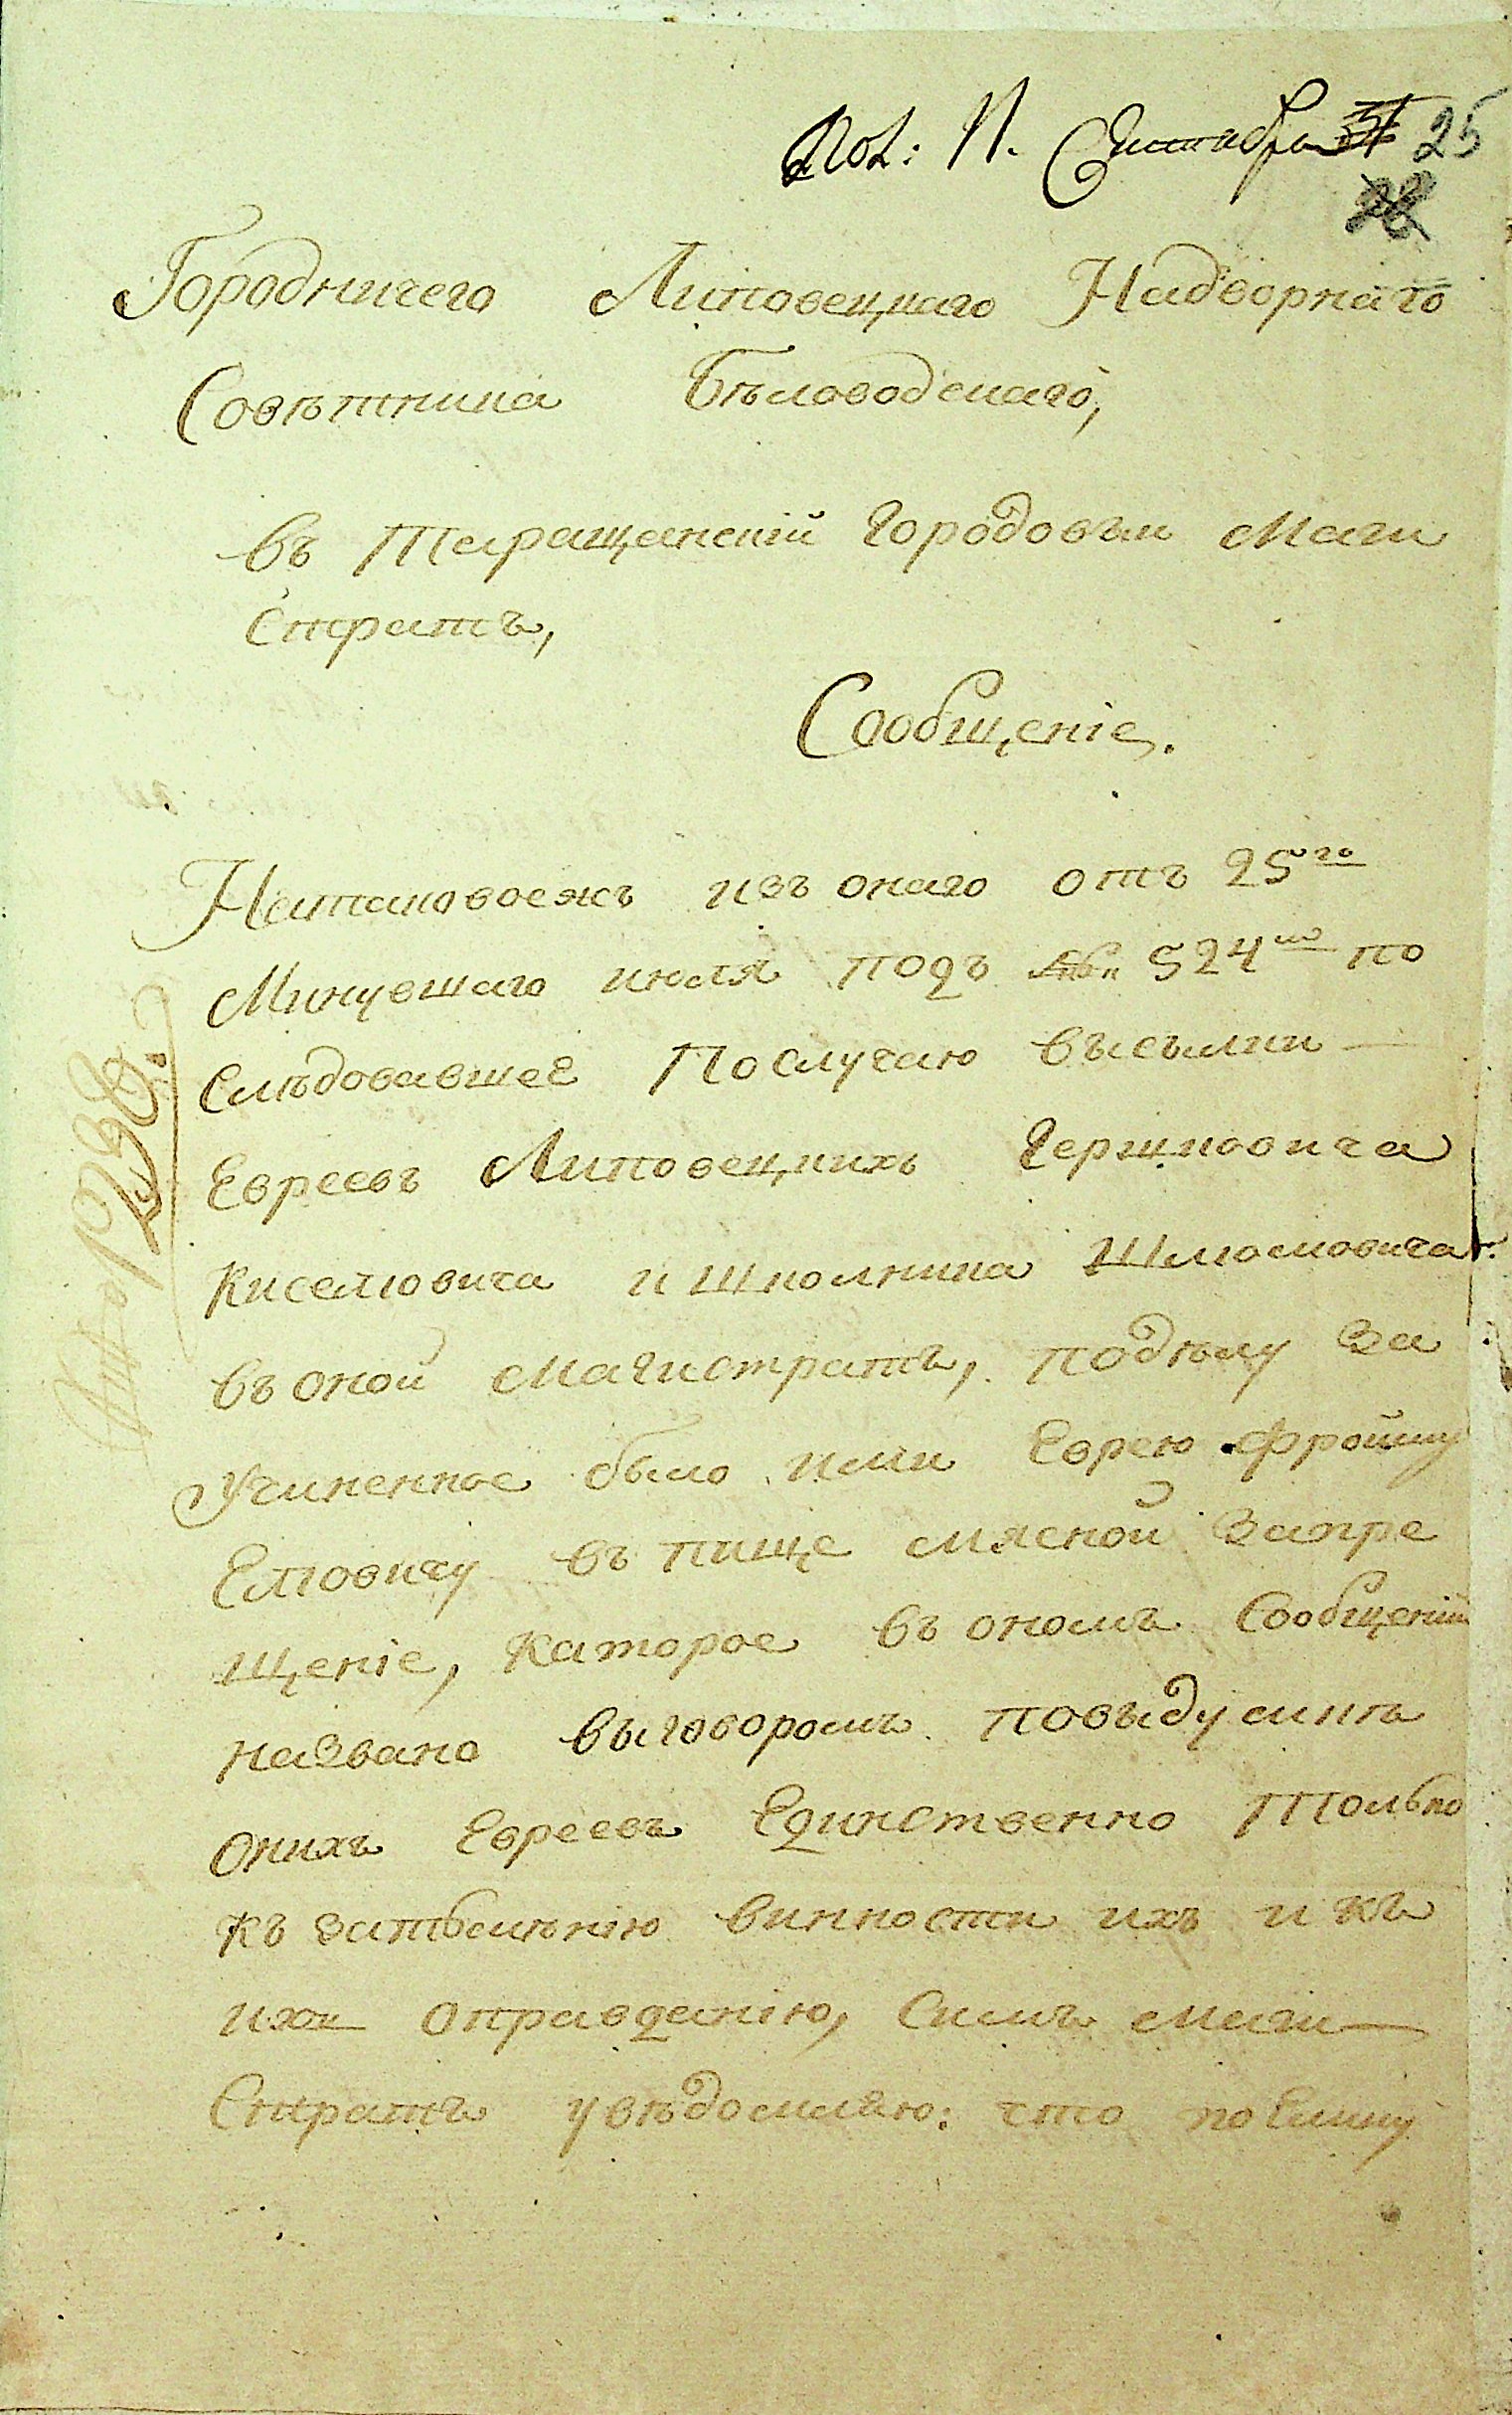 Пол: 11. Сентября 25
Городничего Липовецкаго Надворнаго
Совѣтника Бѣловодскаго,
въ Таращанскій городовый маги
стратъ,
Сообщеніе.
Натаковоежъ изъ онаго отъ 25го
Минувшаго июля подъ № 524мъ по
слѣдовавшее Послучаю высылки
Евреевъ Липовецкихъ Гершковича
Киселіовича и школника Шліомовича
въ оной магистратъ, подѣлу за
учиненное было ими Еврею Фройму
Еліовичу въ пище мясной запре
щеніе, каторое въ ономъ сообщеніи
названо выговоромъ повыдумкѣ
онихъ Евреевъ Единственно Только
къ затьмѣнію винности ихъ и къ
ихъ оправданію, Симъ маги
Стратъ увѣдомляю: что поЕлику
№ 1238.